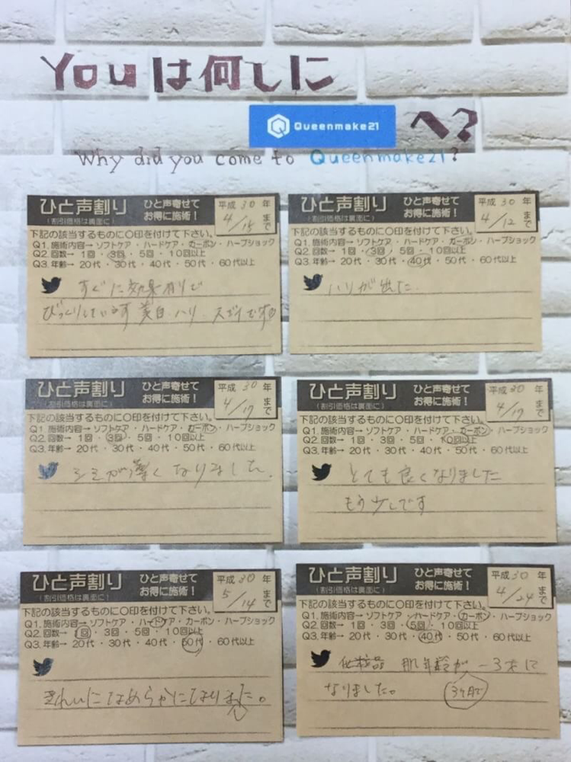 Youは何しに
Queenmake21
へ?
Why did you come to Queenmake21?
ひと声割り
(割引価格は裏面に)
ひと声寄せて
お得に施術!
平成 30 年
4/15 まで
下記の該当するものに〇印を付けて下さい。
Q1. 施術内容→ ソフトケア・ハードケア・カーボン・ハーブショック
Q2. 回数→ 1回・3回・5回・10回以上
Q3. 年齢→ 20代・30代・40代・50代・60代以上
すぐに効果有りで
びっくりしています 美白 ハリ スゴイですね
ひと声割り
(割引価格は裏面に)
ひと声寄せて
お得に施術!
平成 30 年
4/12 まで
下記の該当するものに〇印を付けて下さい。
Q1. 施術内容→ ソフトケア・ハードケア・カーボン・ハーブショック
Q2. 回数→ 1回・3回・5回・10回以上
Q3. 年齢→ 20代・30代・40代・50代・60代以上
ハリが出た
ひと声割り
(割引価格は裏面に)
ひと声寄せて
お得に施術!
平成 30 年
4/17 まで
下記の該当するものに〇印を付けて下さい。
Q1. 施術内容→ ソフトケア・ハードケア・カーボン・ハーブショック
Q2. 回数→ 1回・3回・5回・10回以上
Q3. 年齢→ 20代・30代・40代・50代・60代以上
シミが薄くなりました
ひと声割り
(割引価格は裏面に)
ひと声寄せて
お得に施術!
平成 30 年
4/17 まで
下記の該当するものに〇印を付けて下さい。
Q1. 施術内容→ ソフトケア・ハードケア・カーボン・ハーブショック
Q2. 回数→ 1回・3回・5回・10回以上
Q3. 年齢→ 20代・30代・40代・50代・60代以上
とても良くなりました
もう少しです
ひと声割り
(割引価格は裏面に)
ひと声寄せて
お得に施術!
平成 30 年
5/14 まで
下記の該当するものに〇印を付けて下さい。
Q1. 施術内容→ ソフトケア・ハードケア・カーボン・ハーブショック
Q2. 回数→ 1回・3回・5回・10回以上
Q3. 年齢→ 20代・30代・40代・50代・60代以上
きれいになめらかになりました。
ひと声割り
(割引価格は裏面に)
ひと声寄せて
お得に施術!
平成 30 年
4/24 まで
下記の該当するものに〇印を付けて下さい。
Q1. 施術内容→ ソフトケア・ハードケア・カーボン・ハーブショック
Q2. 回数→ 1回・3回・5回・10回以上
Q3. 年齢→ 20代・30代・40代・50代・60代以上
化粧品 肌年齢が −3才に
なりました。 3ヶ月で